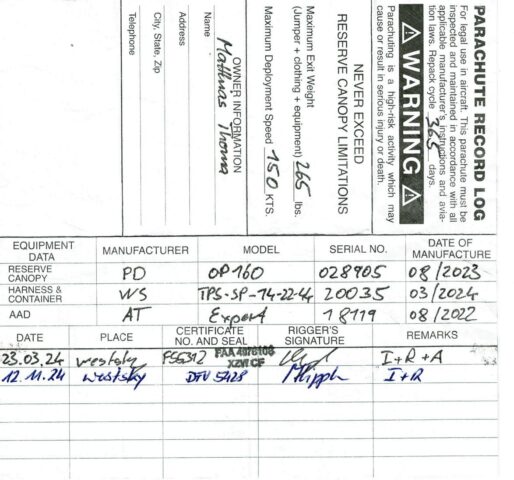 PARACHUTE RECORD LOG
For legal use in aircraft. This parachute must be
inspected and maintained in accordance with all
applicable manufacturer's instructions and avia-
tion laws. Repack cycle 365 days.
WARNING
Parachuting is a high-risk activity which may
cause or result in serious injury or death.
NEVER EXCEED
RESERVE CANOPY LIMITATIONS
Maximum Exit Weight
(Jumper + clothing + equipment) 265 lbs.
Maximum Deployment Speed 150 KTS.
OWNER INFORMATION
Name Matthias Thoma
Address
City, State, Zip
Telephone
EQUIPMENT DATA MANUFACTURER MODEL SERIAL NO. DATE OF MANUFACTURE
RESERVE CANOPY PD OP160 028905 08/2023
HARNESS & CONTAINER WS TPS-SP-14-22-44 20035 03/2024
AAD AT Expert 18119 08/2022
DATE PLACE CERTIFICATE NO. AND SEAL RIGGER'S SIGNATURE REMARKS
23.03.24 westsky I+R+A
12.11.24 westsky DFV 5428 I+R